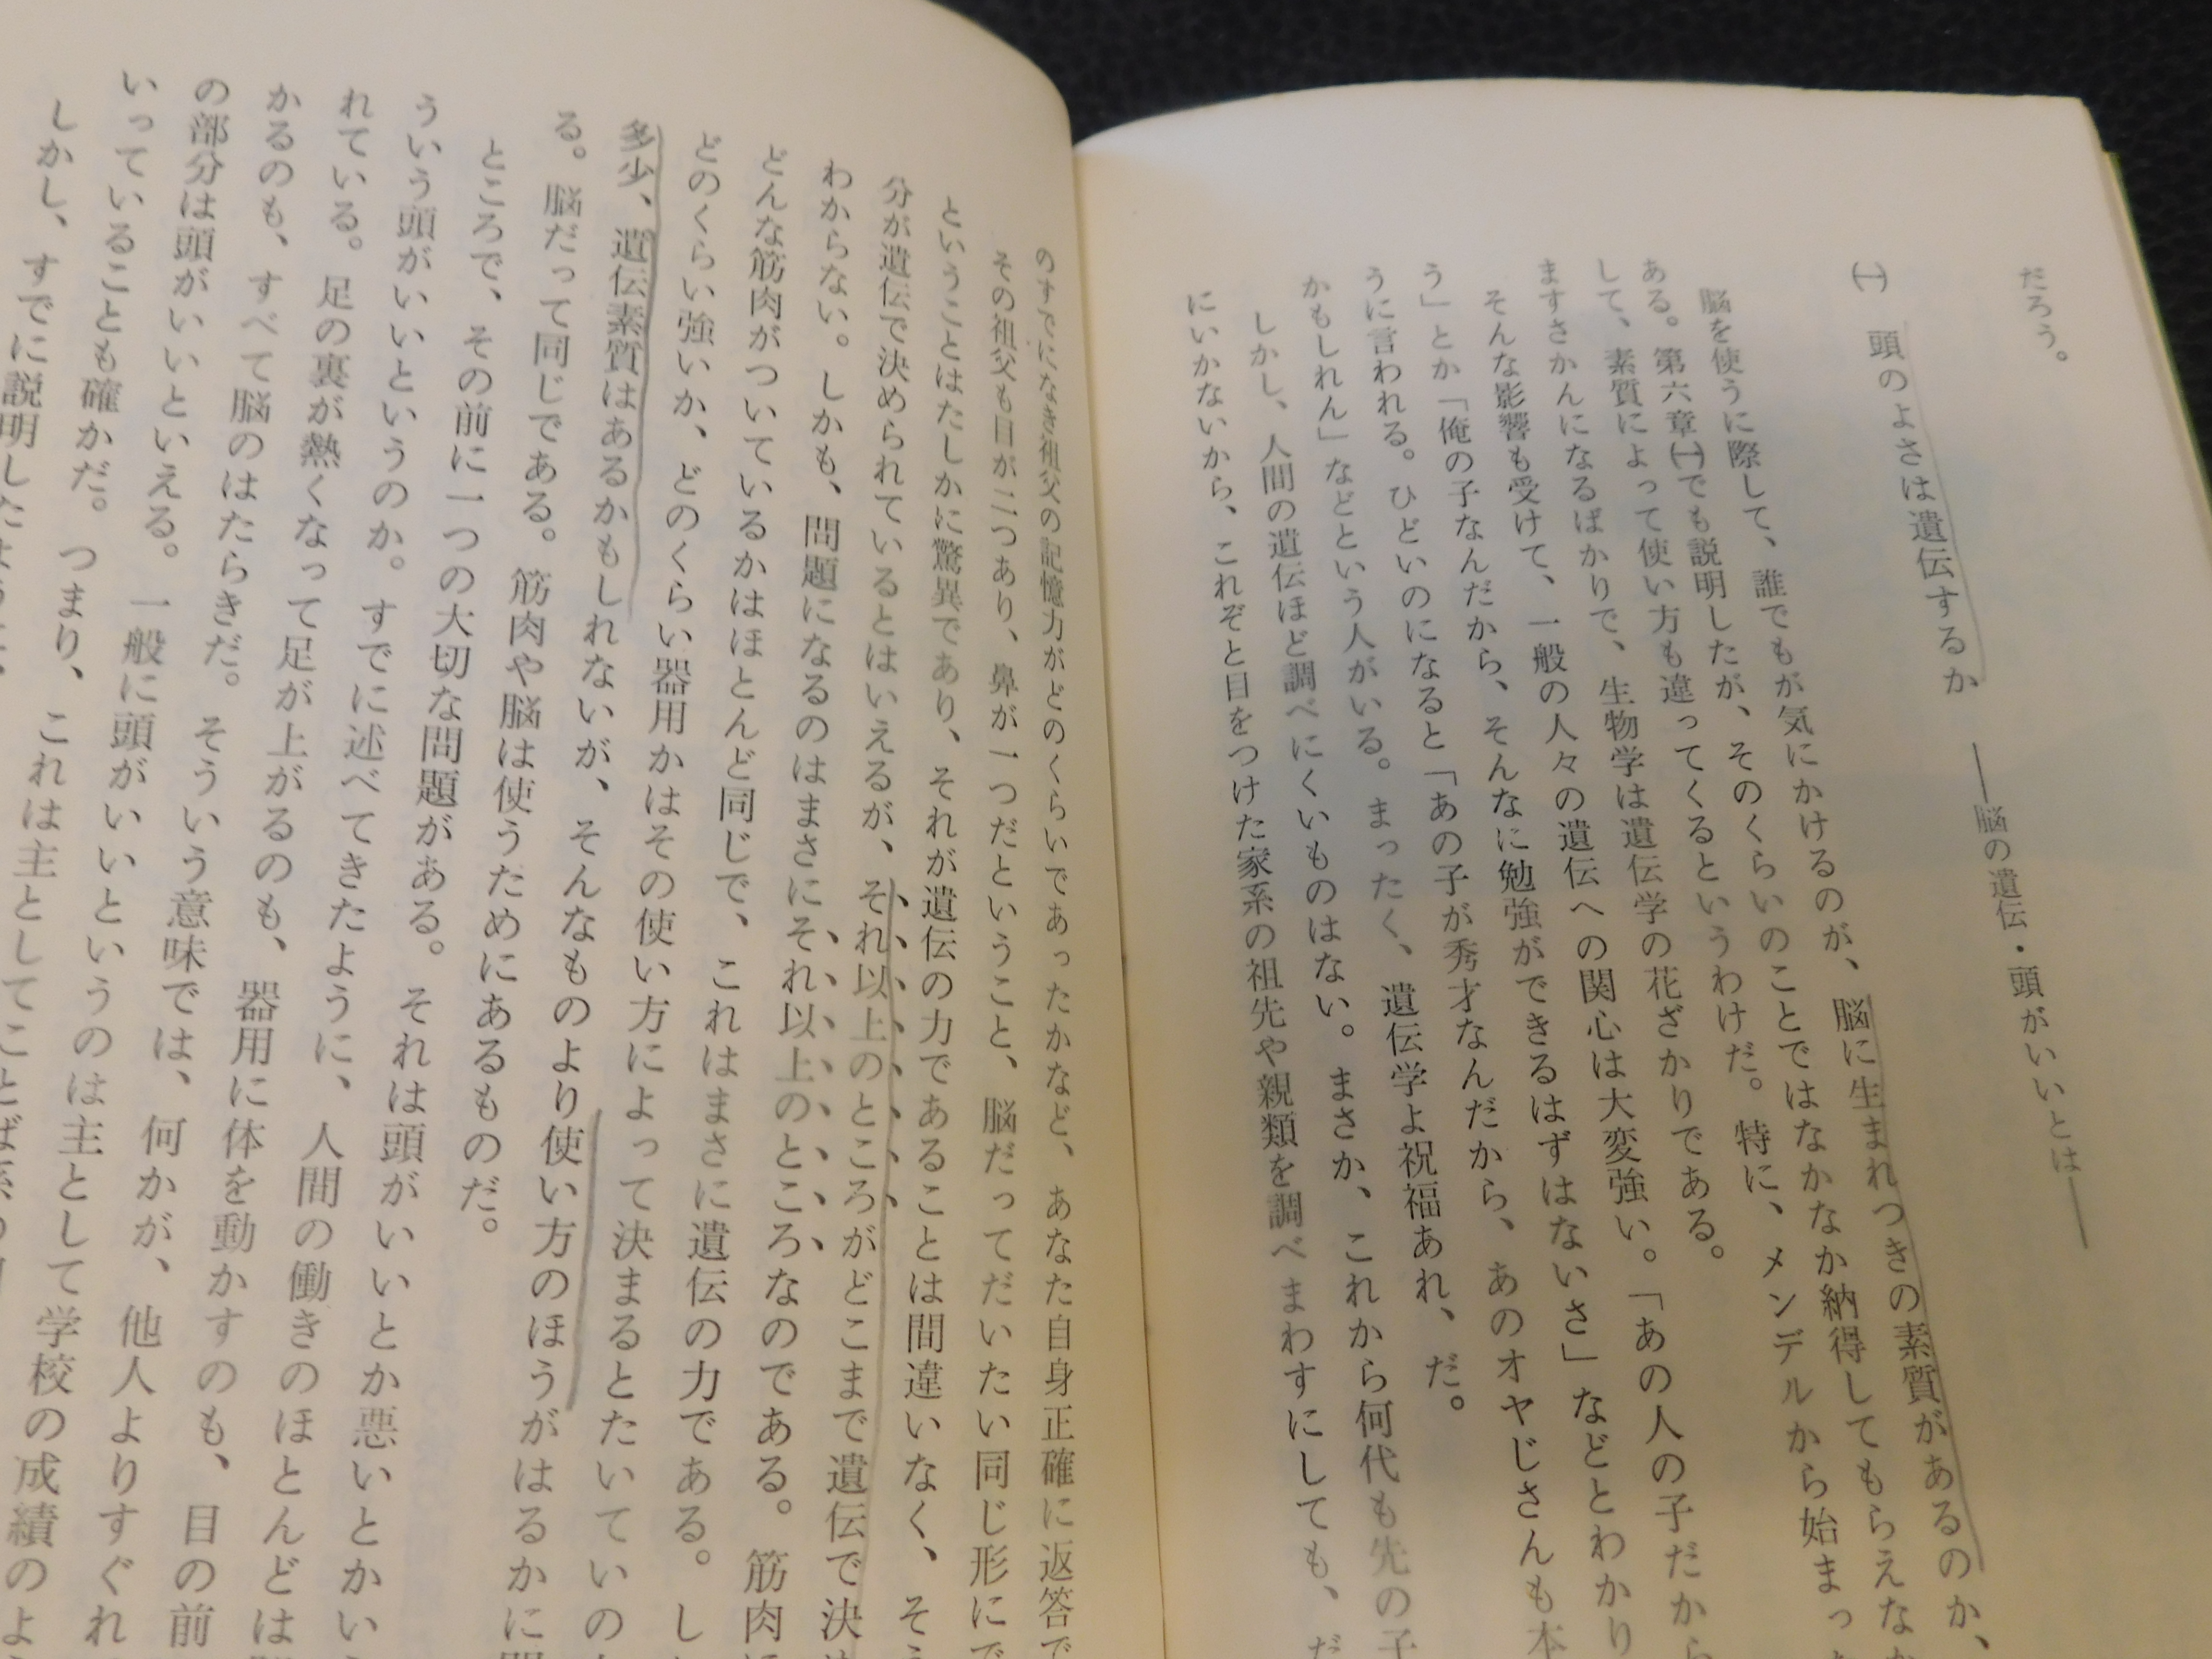 だろう。
㈠ 頭のよさは遺伝するか ――脳の遺伝・頭がいいとは――
脳を使うに際して、誰でもが気にかけるのが、脳に生まれつきの素質があるのか、
ある。第六章㈠でも説明したが、そのくらいのことではなかなか納得してもらえな
して、素質によって使い方も違ってくるというわけだ。特に、メンデルから始まっ
ますさかんになるばかりで、生物学は遺伝学の花ざかりである。
そんな影響も受けて、一般の人々の遺伝への関心は大変強い。「あの人の子だから
う」とか「俺の子なんだから、そんなに勉強ができるはずはないさ」などとわかり
うに言われる。ひどいのになると「あの子が秀才なんだから、あのオヤじさんも本
かもしれん」などという人がいる。まったく、遺伝学よ祝福あれ、だ。
しかし、人間の遺伝ほど調べにくいものはない。まさか、これから何代も先の子
にいかないから、これぞと目をつけた家系の祖先や親類を調べまわすにしても、だ
のすでになき祖父の記憶力がどのくらいであったかなど、あなた自身正確に返答で
その祖父も目が二つあり、鼻が一つだということ、脳だってだいたい同じ形にで
ということはたしかに驚異であり、それが遺伝の力であることは間違いなく、そう
分が遺伝で決められているとはいえるが、それ以上のところがどこまで遺伝で決め
わからない。しかも、問題になるのはまさにそれ以上のところなのである。筋肉に
どんな筋肉がついているかはほとんど同じで、これはまさに遺伝の力である。し
どのくらい強いか、どのくらい器用かはその使い方によって決まるとたいていの
多少、遺伝素質はあるかもしれないが、そんなものより使い方のほうがはるかに
る。脳だって同じである。筋肉や脳は使うためにあるものだ。
ところで、その前に一つの大切な問題がある。それは頭がいいとか悪いとかい
ういう頭がいいというのか。すでに述べてきたように、人間の働きのほとんどは
れている。足の裏が熱くなって足が上がるのも、器用に体を動かすのも、目の前
かるのも、すべて脳のはたらきだ。そういう意味では、何かが、他人よりすぐれ
の部分は頭がいいといえる。一般に頭がいいというのは主として学校の成績のよ
いっていることも確かだ。つまり、これは主としてことば系の
しかし、すでに説明したように、